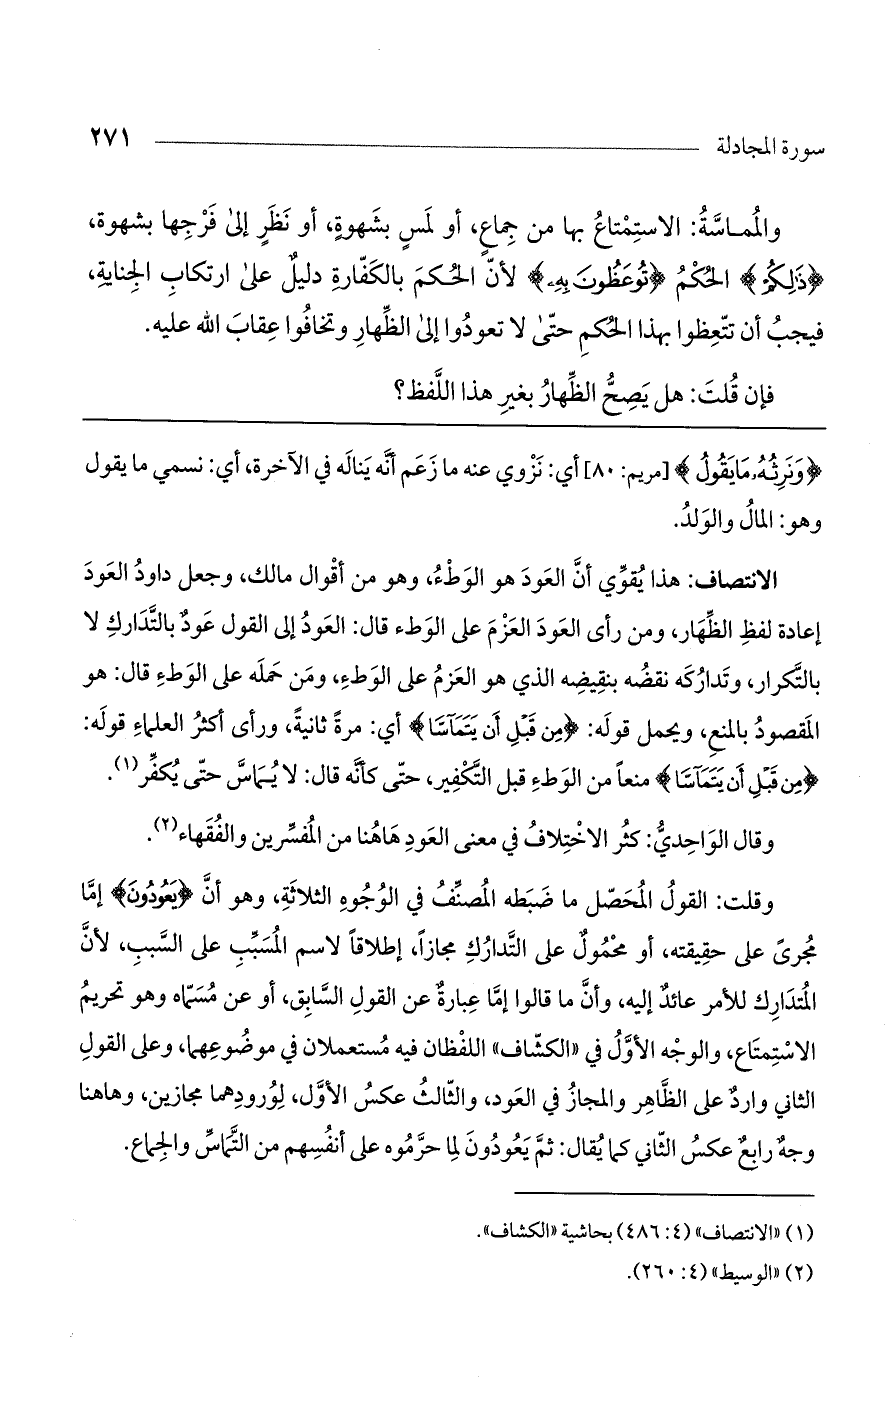 سورة المجادلة ٢٧١
والمُماسَّةُ: الاستِمْتاعُ بها من جِماعٍ، أو لَمسٍ بشَهوةٍ، أو نَظَرٍ إلىٰ فَرْجِها بشهوة،
﴿ذَٰلِكُمْ﴾ الحُكْمُ ﴿تُوعَظُونَ بِهِۦ﴾ لأنّ الحُكمَ بالكَفّارةِ دليلٌ علىٰ ارتكابِ الجِنايةِ،
فيجبُ أن تتّعِظوا بهذا الحُكمِ حتّىٰ لا تعودُوا إلىٰ الظِّهارِ وتخافُوا عِقابَ الله عليه.
فإن قُلتَ: هل يَصِحُّ الظِّهارُ بغيرِ هذا اللَّفظ؟
﴿وَنَرِثُهُۥ مَا يَقُولُ﴾ [مريم: ٨٠] أي: نَزْوي عنه ما زَعَم أنَّه يَنالَه في الآخرة، أي: نسمي ما يقول
وهو: المالُ والوَلدُ.
الانتصاف: هذا يُقوِّي أنَّ العَودَ هو الوَطْءُ، وهو من أقْوال مالك، وجعل داودُ العَودَ
إعادة لفظِ الظِّهَار، ومن رأى العَودَ العَزْمَ على الوَطء قال: العَودُ إلى القول عَودٌ بالتَّدَاركِ لا
بالتَّكرار، وتَدارُكَه نقضُه بنقِيضِه الذي هو العَزمُ على الوَطءِ، ومَن حَملَه على الوَطءِ قال: هو
المَقصودُ بالمنعِ، ويحمل قولَه: ﴿مِن قَبْلِ أَن يَتَمَآسَّا﴾ أي: مرةً ثانيةً، ورأى أكثرُ العلماءِ قولَه:
﴿مِن قَبْلِ أَن يَتَمَآسَّا﴾ منعاً من الوَطءِ قبل التَّكْفِير، حتّى كأنَّه قال: لا يُمَاسَّ حتّى يُكفِّر(١).
وقال الوَاحِديُّ: كثُر الاخْتِلافُ في معنى العَودِ هَاهُنا من المُفسِّرين والفُقَهاء(٢).
وقلت: القولُ المُحَصّل ما ضَبَطه المُصنِّفُ في الوُجُوهِ الثلاثَةِ، وهو أنَّ ﴿يَعُودُونَ﴾ إمَّا
مُجرىً على حقِيقته، أو محْمُولٌ على التَّدارُكِ مجازاً، إطلاقاً لاسم المُسَبِّبِ على السَّببِ، لأنَّ
المُتدَارِك للأمر عائدٌ إليه، وأنَّ ما قالوا إمَّا عِبارةٌ عن القولِ السَّابِق، أو عن مُسَمّاه وهو تحريمُ
الاسْتِمتَاع، والوجْه الأوَّلُ في «الكشّاف» اللفْظان فيه مُستعملان في موضُوعِهما، وعلى القولِ
الثاني واردٌ على الظَّاهِر والمجازُ في العَود، والثّالثُ عكسُ الأوَّل، لِوُرودِهما مجازين، وهاهنا
وجهٌ رابعٌ عكسُ الثّاني كما يُقال: ثمَّ يَعُودُونَ لِما حرَّمُوه على أنفُسِهم من التَّماسِّ والجِماع.
(١) «الانتصاف» (٤: ٤٨٦) بحاشية «الكشاف».
(٢) «الوسيط» (٤: ٢٦٠).